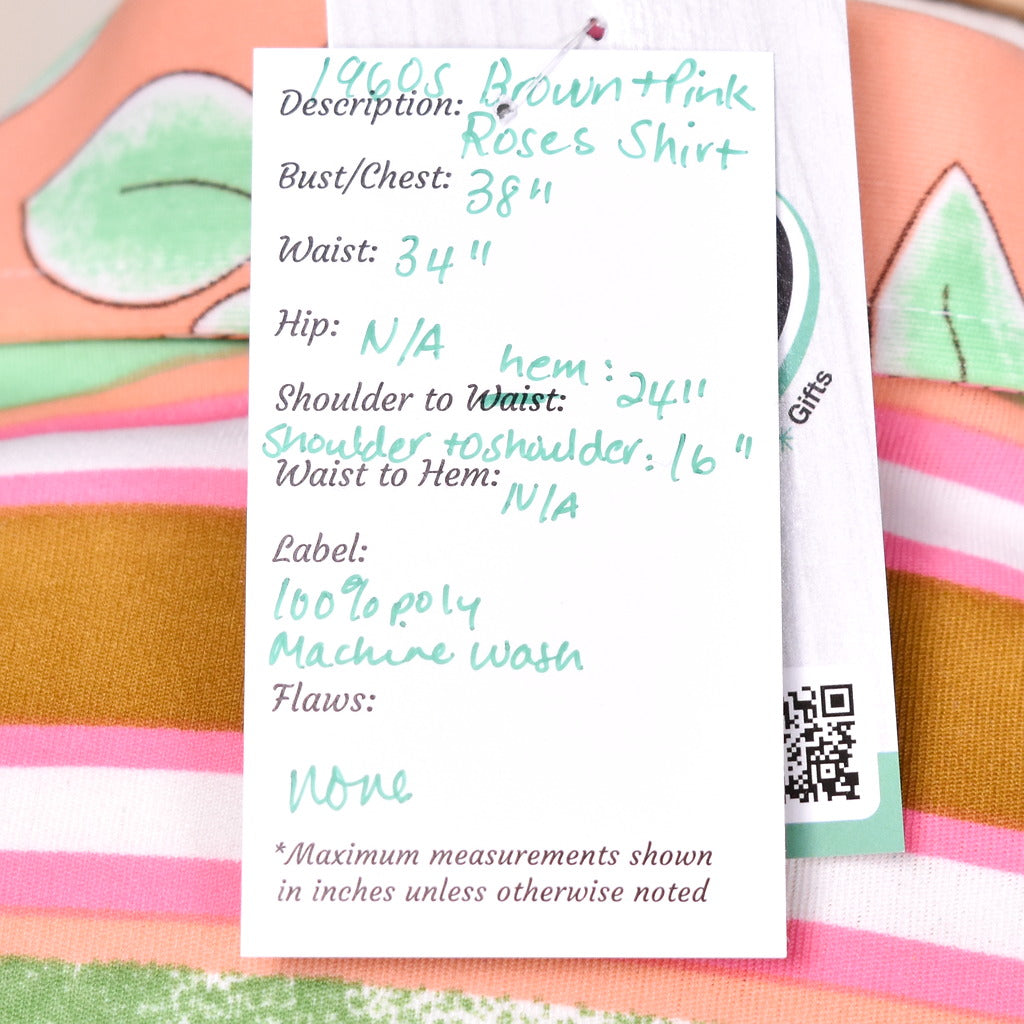 Description: 1960s Brown + Pink
Roses Shirt
Bust/Chest: 38"
Waist: 34"
Hip: N/A
Shoulder to Waist: hem: 24"
Shoulder to shoulder: 16"
Waist to Hem: N/A
Label:
100% poly
Machine wash
Flaws:
none
*Maximum measurements shown
in inches unless otherwise noted
Gifts